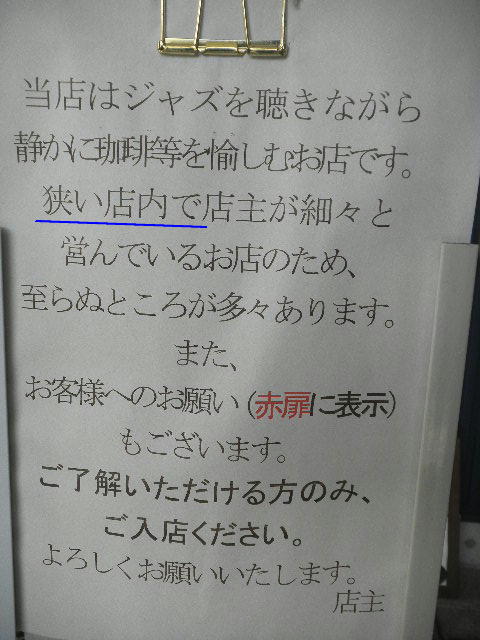 当店はジャズを聴きながら
静かに珈琲等を愉しむお店です。
狭い店内で店主が細々と
営んでいるお店のため、
至らぬところが多々あります。
また、
お客様へのお願い(赤扉に表示)
もございます。
ご了解いただける方のみ、
ご入店ください。
よろしくお願いいたします。
店主